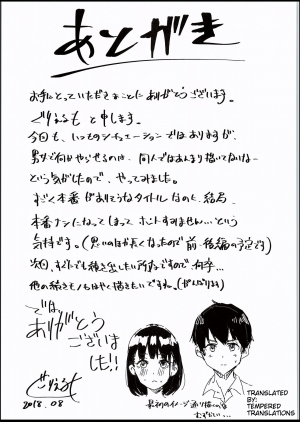 あとがき
お手にとっていただきまことにありがとうございます。
ぐりえるもと申します。
今回も、いつものシチュエーションではありますが、
という気がしたので、やってみました。
すごく本番がありそうなタイトルなのに、結局
本番ナシになってしまってホントすみません…という
気持です。(思いのほか長くなったので前・後編の予定です)
次回、すぐにでも続き出したい所存ですので、何卒…
他の続きもノもはやく描きたいですね。(がんばります)
では
ありがとう
ございま
した!!
ぐりえるも
2018.08
最初のイメージ通り描くのは
むずかしい…
TRANSLATED
BY:
TEMPERED
TRANSLATIONS